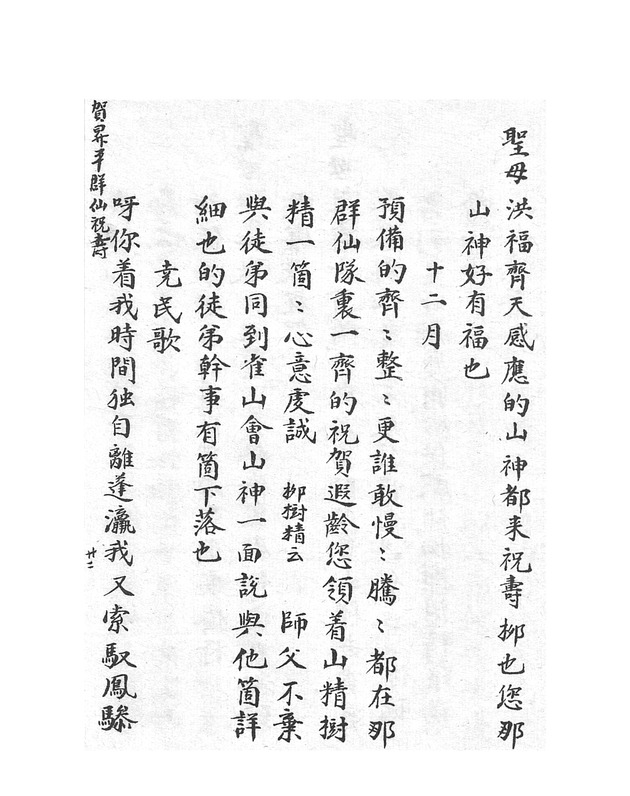 聖母洪福齊天感應的山神都来祝壽柳也您那
山神好有福也
十二月
預備的齊〻整〻更誰敢慢〻騰〻都在那
群仙隊裏一齊的祝賀遐齡您領着山精樹
精一箇〻心意虔誠 柳樹精云 師父不棄
與徒弟同到崔山會山神一面說與他箇詳
細也的徒弟幹事有箇下落也
堯民歌
呀你着我時間独自離蓬瀛我又索馭鳳驂
賀昇平群仙祝壽
廿二